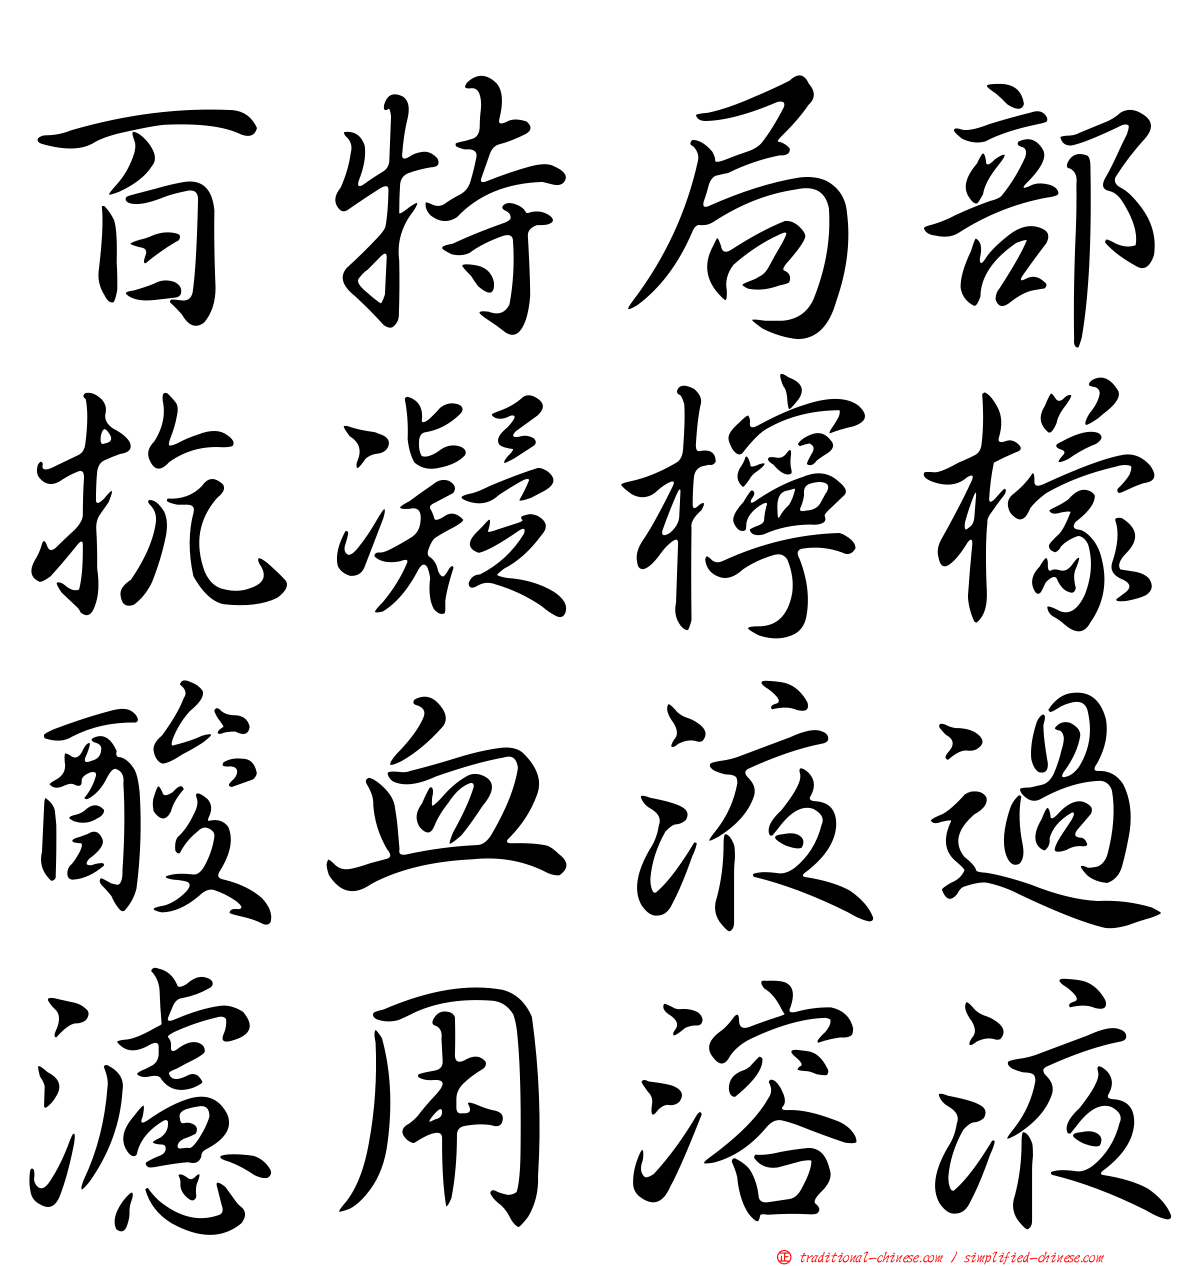 百特局部
抗凝檸檬
酸血液過
濾用溶液
㊣ traditional-chinese.com / simplified-chinese.com